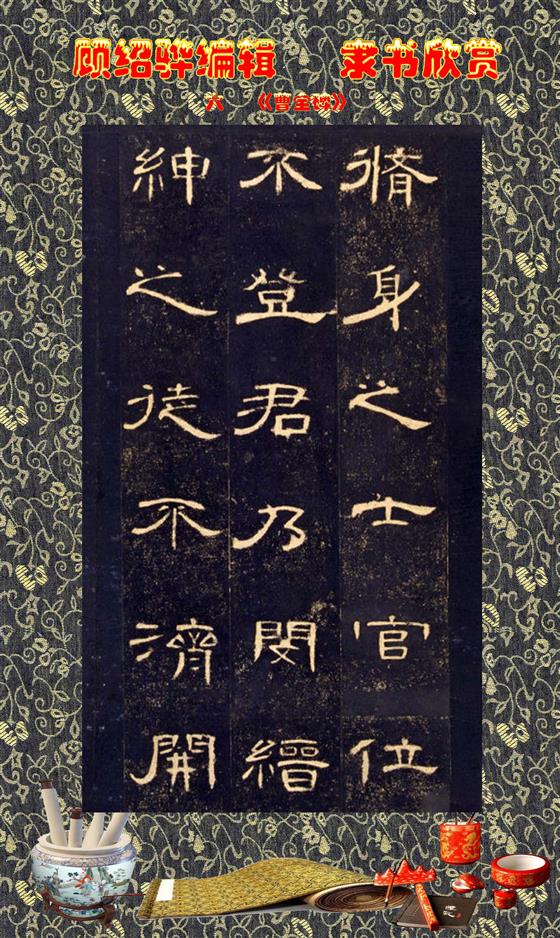 顾绍骅编辑 隶书欣赏
六 《曹全碑》
脩身之士官位
不登君乃閔縉
紳之徒不濟開